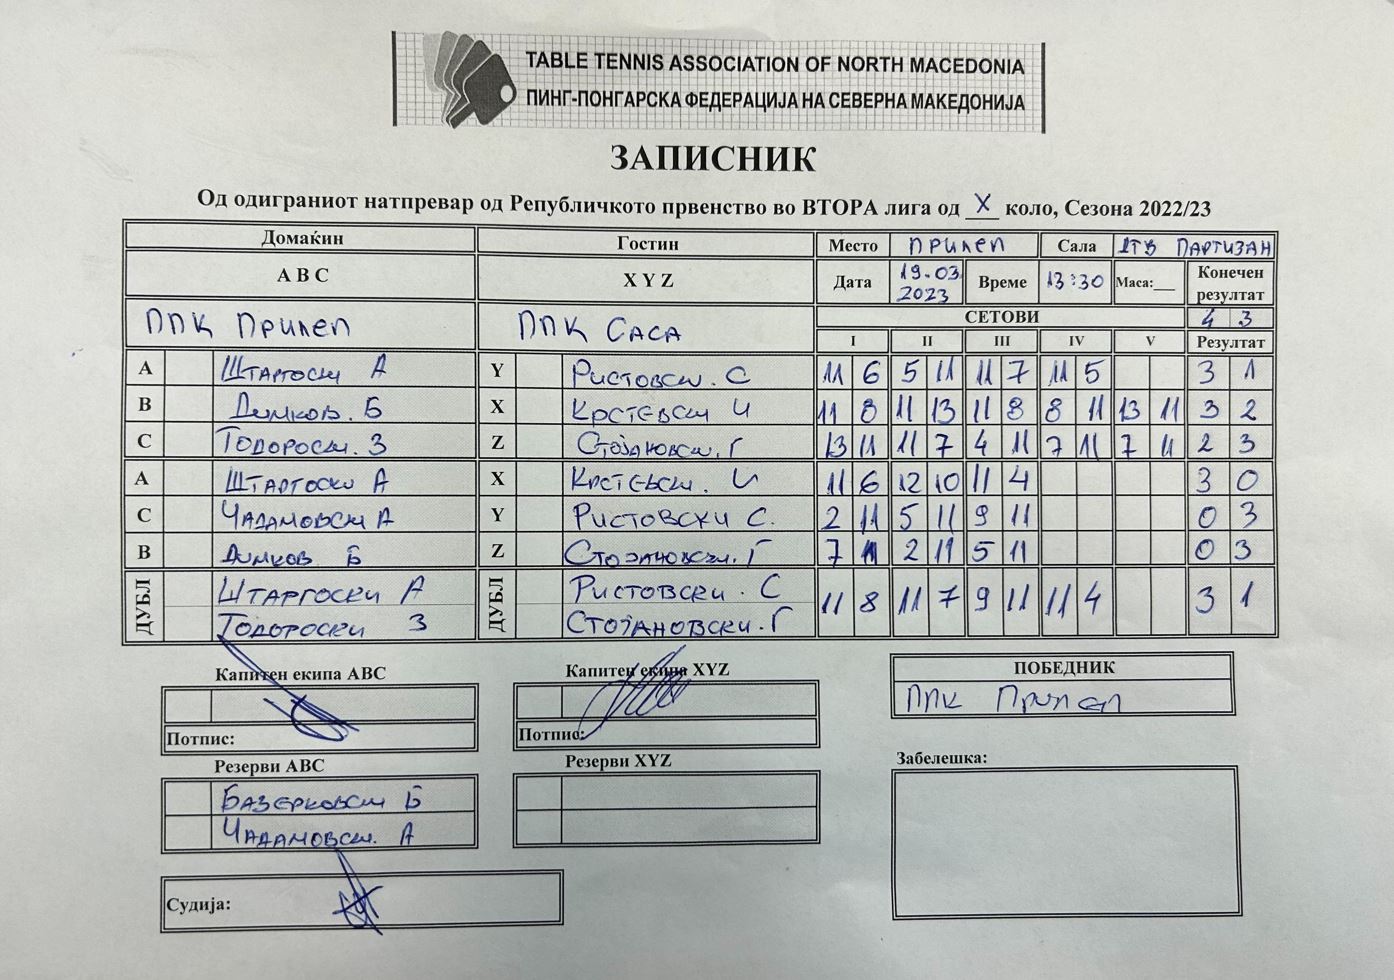 TABLE TENNIS ASSOCIATION OF NORTH MACEDONIA
ПИНГ-ПОНГАРСКА ФЕДЕРАЦИЈА НА СЕВЕРНА МАКЕДОНИЈА
ЗАПИСНИК
Од одиграниот натпревар од Републичкото првенство во ВТОРА лига од X коло, Сезона 2022/23
Домаќин Гостин Место ПРИЛЕП Сала ПАРТИЗАН
A B C X Y Z Дата 19.03 2023 Време 13:30 Маса:___ Конечен резултат
ППК ПРИЛЕП ППК САСА СЕТОВИ 4 3
I II III IV V Резултат
A ШТАРГОСКИ А Y РИСТОВСКИ. С 11 6 5 11 11 7 11 5 3 1
B ДИМКОВ. Б X КРСТЕВСКИ И 11 8 11 13 11 8 8 11 13 11 3 2
C ТОДОРОСКИ. З Z СТОЈАНОВСКИ. Г 13 11 11 7 4 11 7 11 7 11 2 3
A ШТАРГОСКИ А X КРСТЕВСКИ. И 11 6 12 10 11 4 3 0
C ЧАДАМОВСКИ А Y РИСТОВСКИ С. 2 11 5 11 9 11 0 3
B ДИМКОВ Б Z СТОЈАНОВСКИ. Г 7 11 2 11 5 11 0 3
ДУБЛ ШТАРГОСКИ А ДУБЛ РИСТОВСКИ. С 11 8 11 7 9 11 11 4 3 1
ТОДОРОСКИ З СТОЈАНОВСКИ. Г
Капитен екипа ABC Капитен екипа XYZ ПОБЕДНИК
ППК ПРИЛЕП
Потпис: Потпис:
Резерви ABC Резерви XYZ Забелешка:
БАЗЕРКОВСКИ Б
ЧАДАМОВСКИ. А
Судија: